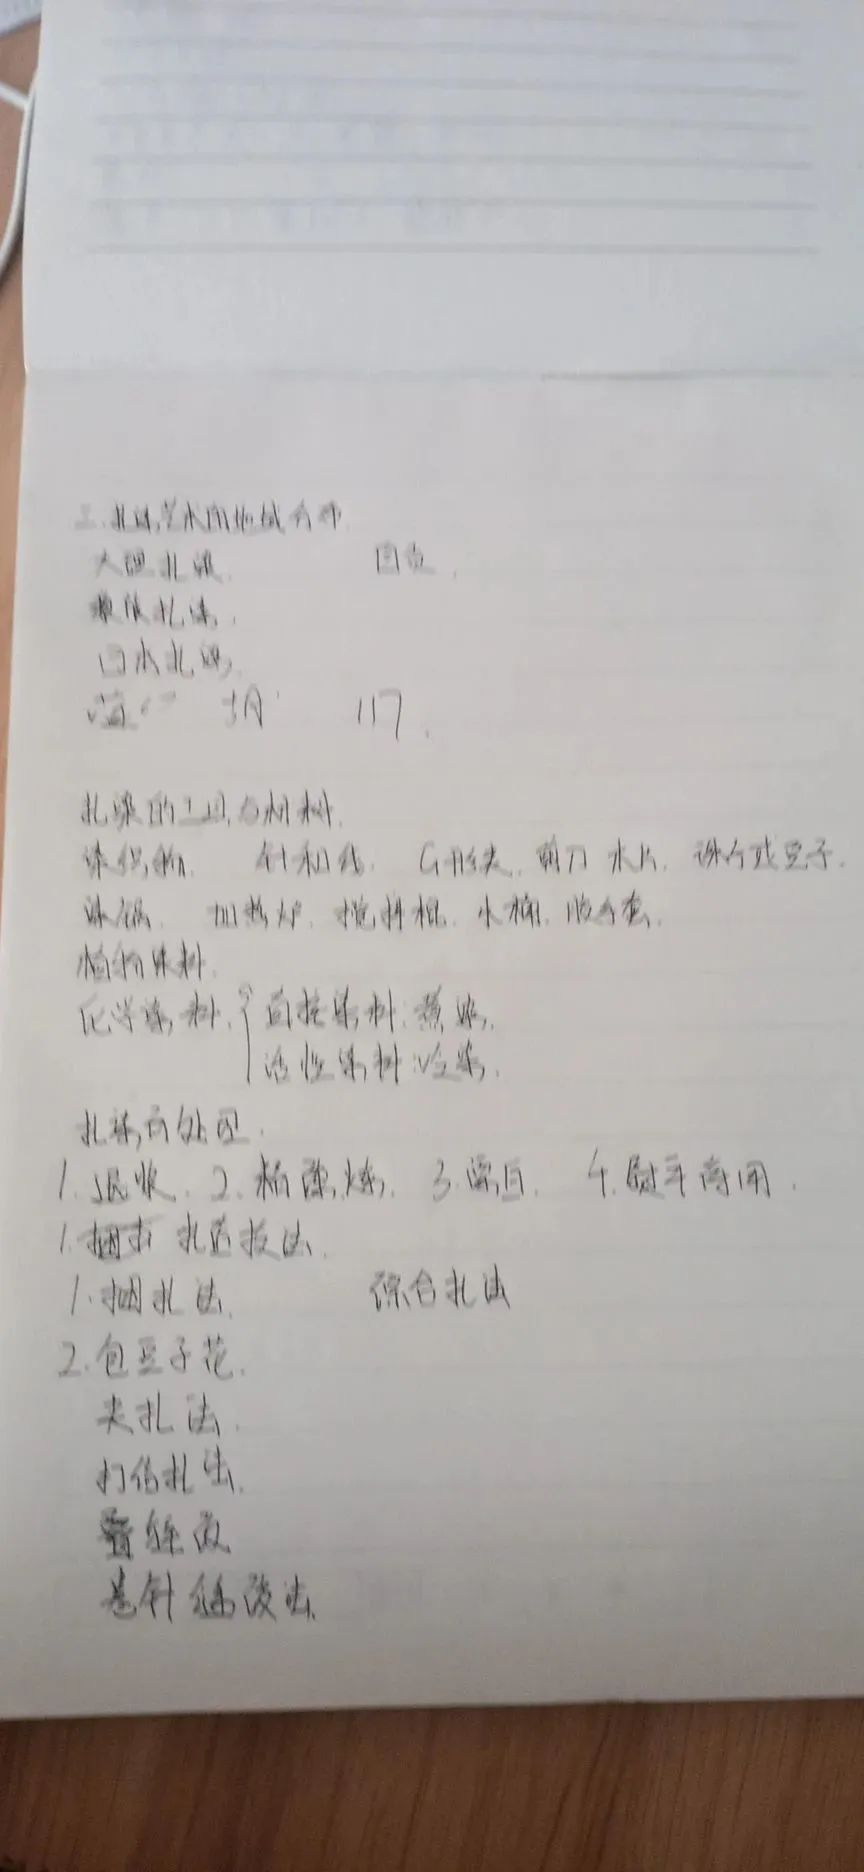 三.扎染艺术的地域分布.
大理扎染. 自贡.
扎染.
日本扎染.
117.
扎染的工具与材料.
染织物. 针和线. G形夹. 剪刀 木片. 珠子或豆子.
染锅. 加热炉. 搅拌棍. 水桶. 胶手套.
植物染料.
化学染料. 直接染料:煮染.
活性染料:冷染.
扎染前处理.
1.退浆. 2.精炼. 3.漂白. 4.熨平待用.
1.捆扎 扎结技法.
1.捆扎法. 综合扎法
2.包豆子花.
夹扎法.
打结扎法.
叠缝
卷针缝法.